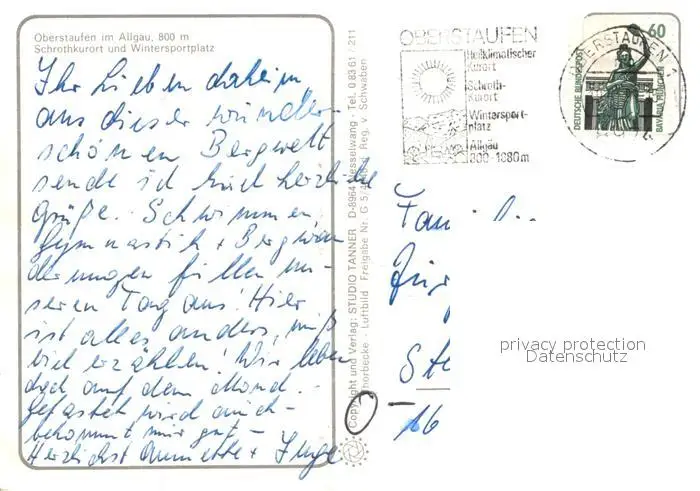 Oberstaufen im Allgäu, 800 m
Schrothkurort und Wintersportplatz
Ihr Lieben daheim
aus dieser wunder-
schönen Bergwelt
sende ich Euch herzliche
Grüße. Schwimmen
Gymnastik + Bergwan
derungen füllen un-
seren Tag aus! Hier
ist alles anders, muß
viel erzählen! Wir leben
doch auf dem Mond. -
Gefastet wird auch -
bekommt mir gut -
Herzlichst Annette + Inge
Copyright und Verlag: STUDIO TANNER D-8964 Nesselwang - Tel. 0 83 61 / 211
Thorbecke - Luftbild Freigabe Nr. G 5/ Reg. v. Schwaben
OBERSTAUFEN
Heilklimatischer
Kurort
Schroth-
Kurort
Wintersport-
platz
Allgäu
800-1880m
OBERSTAUFEN 1
60
DEUTSCHE BUNDESPOST
BAVARIA MÜNCHEN
Fam
Jür
Ste
16
privacy protection
Datenschutz